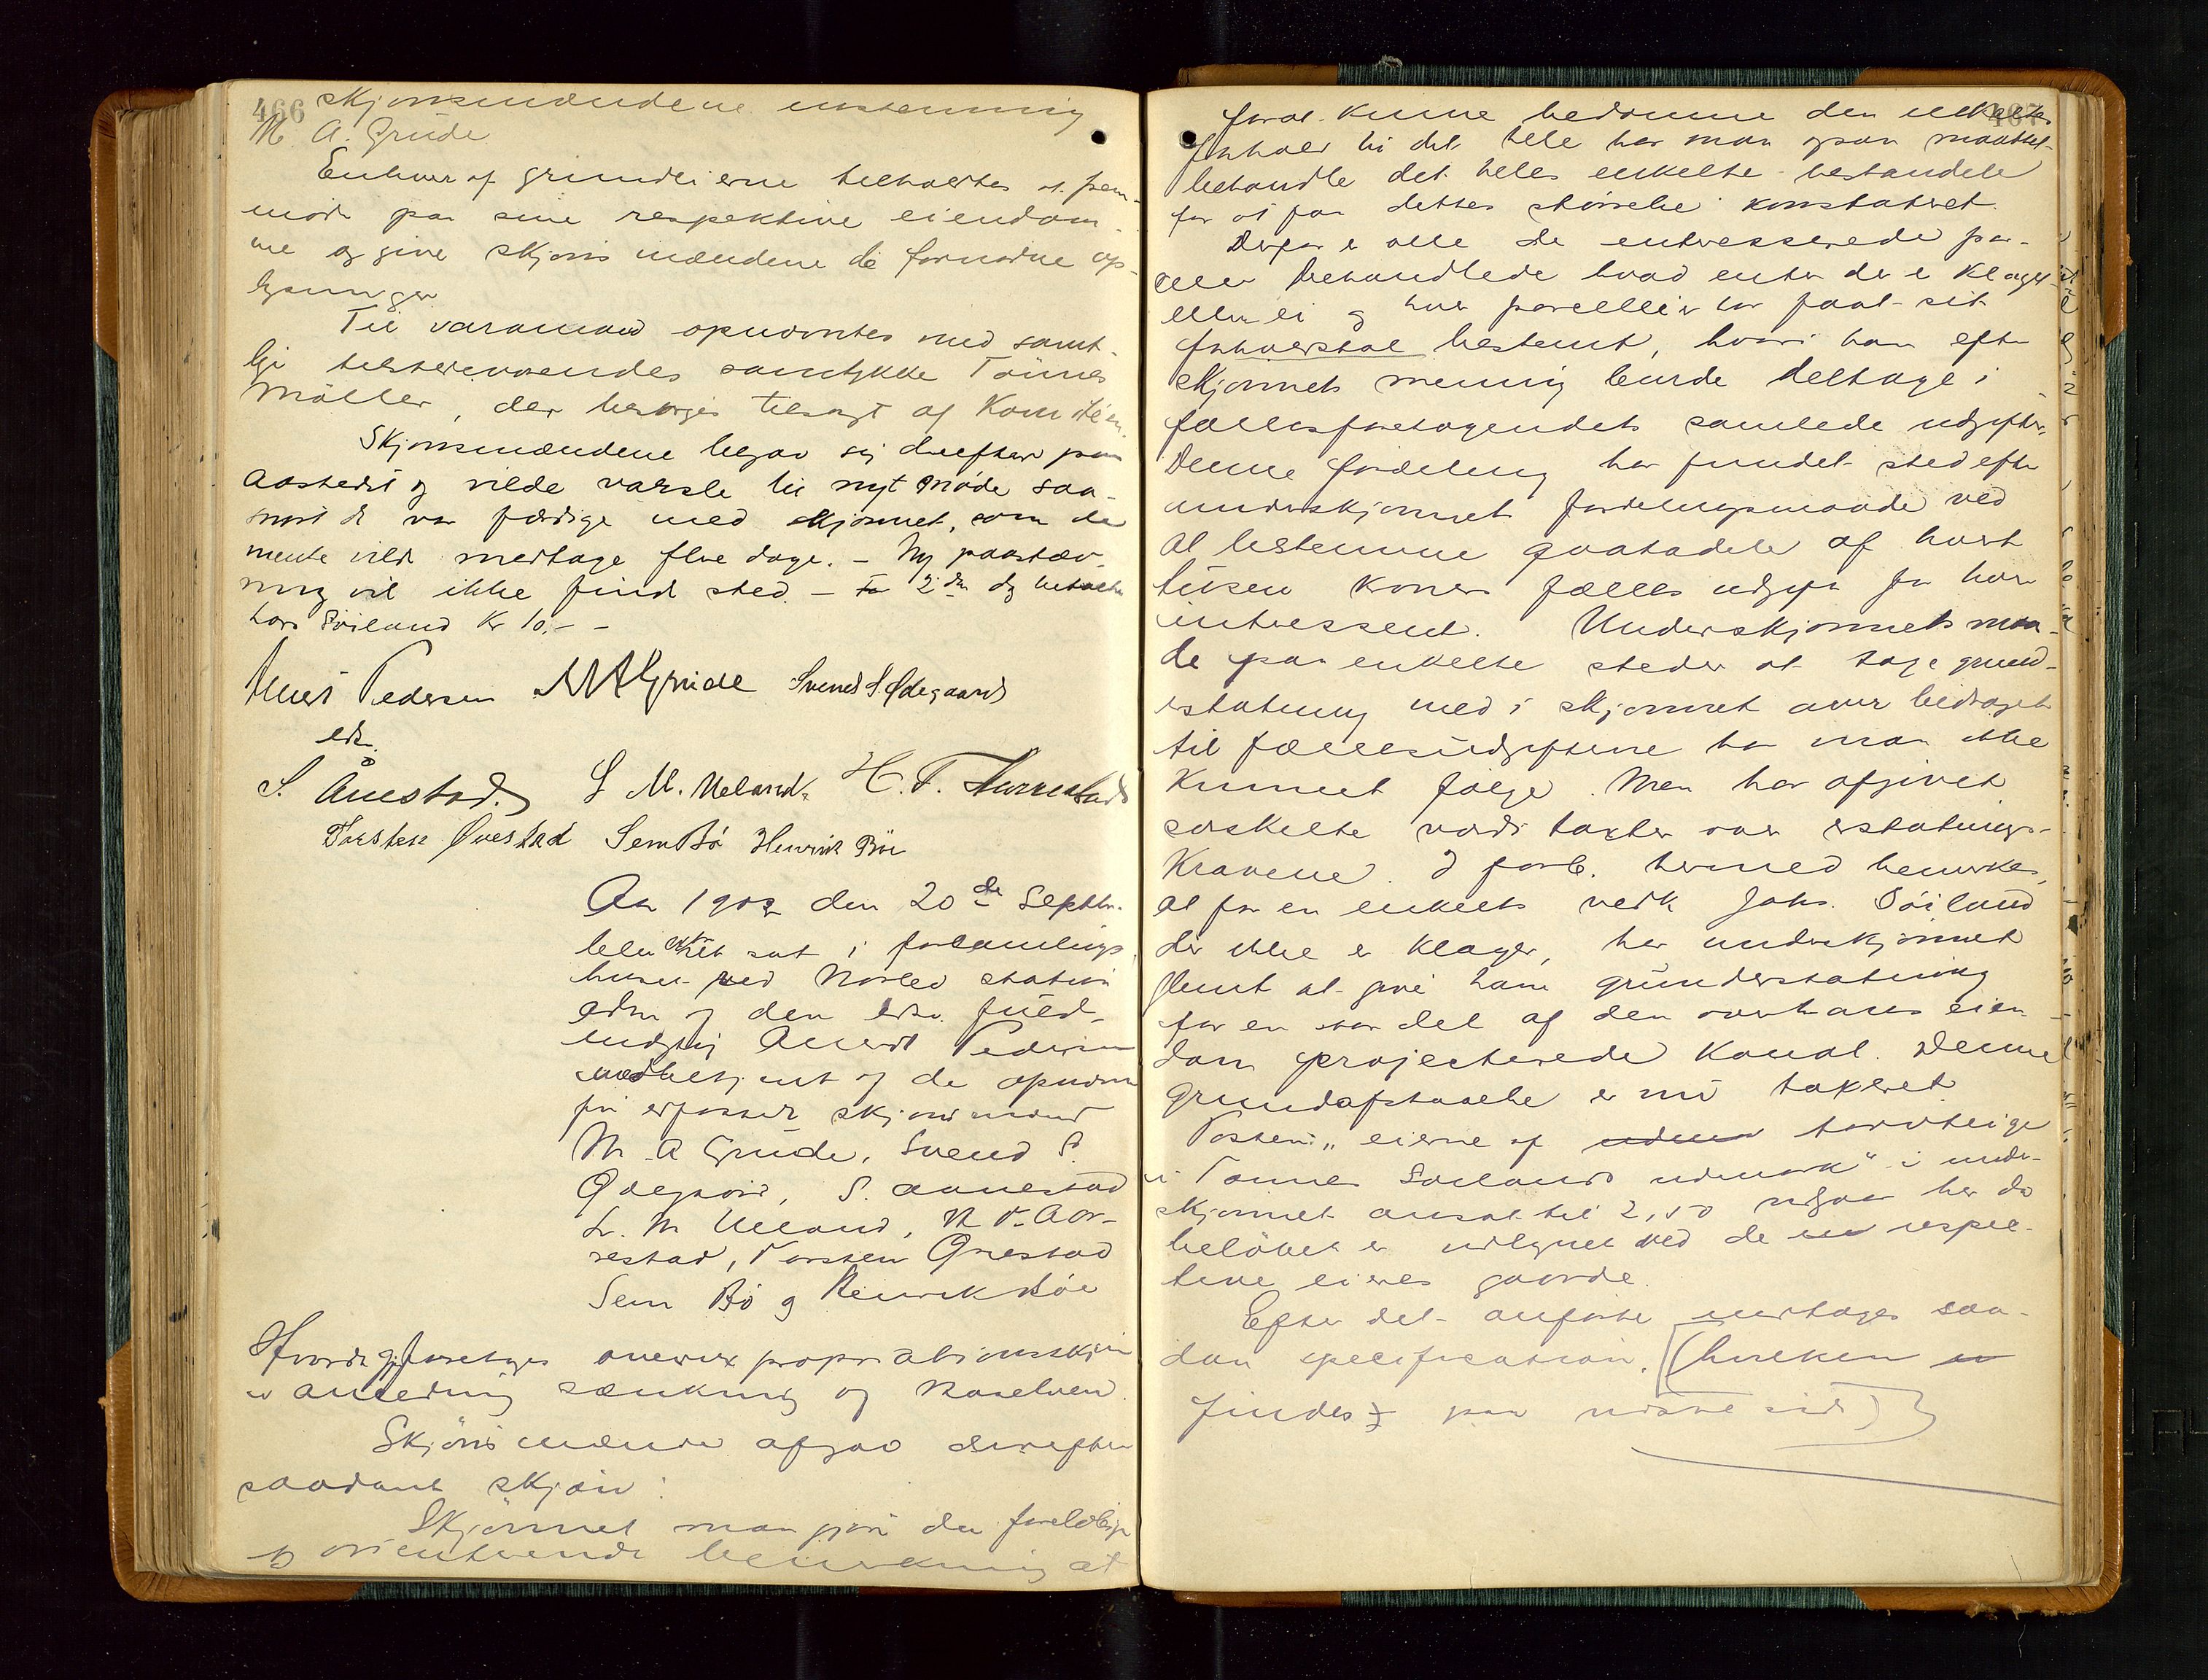 466 skjønsmændene enstemmig
M. A. Grude
Enhver af grundeierne tilholdtes at frem-
møde paa sine respektive eiendom-
me og give skjønsmændene de fornødne op-
lysninger.
Til varamand opnævntes med samt-
lige tilstedeværendes samtykke Tønnes
Møller, der besørges tilsagt af Komiteen.
Skjønsmændene begav sig derefter paa
Aastedet og vilde varsle til nyt Møde saa-
snart de var færdige med skjønnet, som de
mente vilde medtage flere dage. – Ny paastæv-
ning vil ikke finde sted. – 2den dag betalte
Lars Söiland Kr 10,–
Aners Pedersen M A Grude Svend S. Ødegaard
edsv.
S. Ånestad. L M. Ueland. H. T. Aarrestad
Torsten Qvestad Sem Bö Henrik Böe
Aar 1902 den 20de Septbr.
blev ret sat i forsamlings
huset ved Nærbø station
adm af den edsv. fuld-
mægtig Anerst Pedersen
medbetjent af de opnævn
før erfarne skjønsmænd
M. A Grude, Svend S.
Ødegaard, S. Aanestad
L. M Ueland, H. T. Aar-
restad, Torsten Qvestad
Sem Bö og Henrik Böe
Hvorda foretoges overexpropriationsskjøn
i anledning sænkning af Haaelven.
Skjönsmændene afgav derefter
saadant skjøn:
Skjönnet maa gjøre den foreløbige
og orienterende bemærkning at
467
for at kunne bedømme den enkeltes
forhold til det hele har man ogsaa maattet
behandle det heles enkelte bestandele
for at faa dettes størrelse konstateret.
Derfor er alle de interesserede par-
celler behandlede hvad enten de er klaget
eller ei og hver parcelleier har faaet sit
forholdstal bestemt, hvori han efter
skjønnets mening burde deltage i
fællesforetagendets samlede udgifter.
Denne fordeling har fundet sted efter
underskjønnets fordelingsmaade ved
at bestemme qvotadele af hvert
tusen kroners fælles udgift for hver
interessent. Underskjønnets maa-
de paa enkelte steder at tage grund-
erstatning med i skjønnet over bidraget
til fællesudgifterne har man ikke
kunnet følge. Men har afgivet
særskilte værditakster over erstatnings-
kravene. I forb. hermed bemærkes,
at for en enkelts vedk Johs. Söiland
der ikke er klager, har underskjønnet
glemt at give ham grunderstatning
for en stor del af den over hans eien-
dom projecterede Kanal. Denne
grundafstaaelse er nu takseret.
Posten: „eierne af torvteige
i Tønnes Sørlands udmark" i under-
skjønnet ansat til 2,50 udgaar her da
beløbet er udlignet ved de respec-
tive eieres gaarde.
Efter det anførte vedtages saa-
dan specification, (hvilken
findes paa næste side)